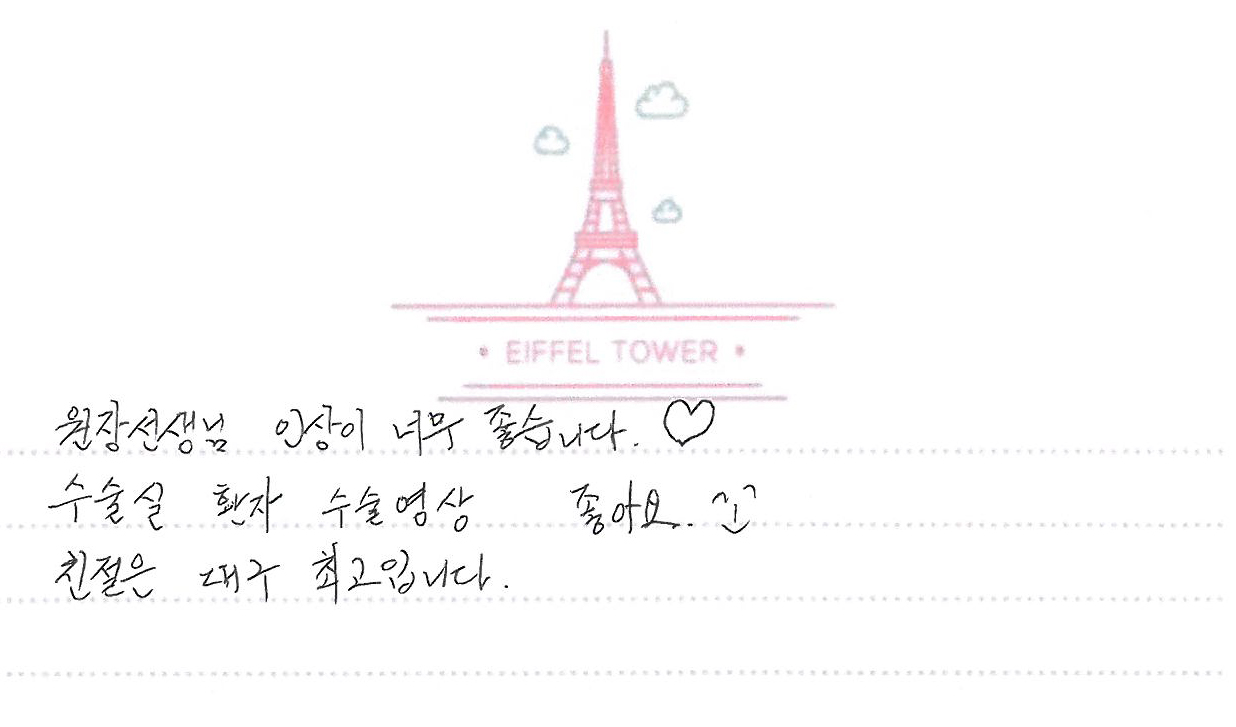 • EIFFEL TOWER •
원장선생님 인상이 너무 좋습니다. ♡
수술실 환자 수술영상 좋아요..
친절은 대구 최고입니다.